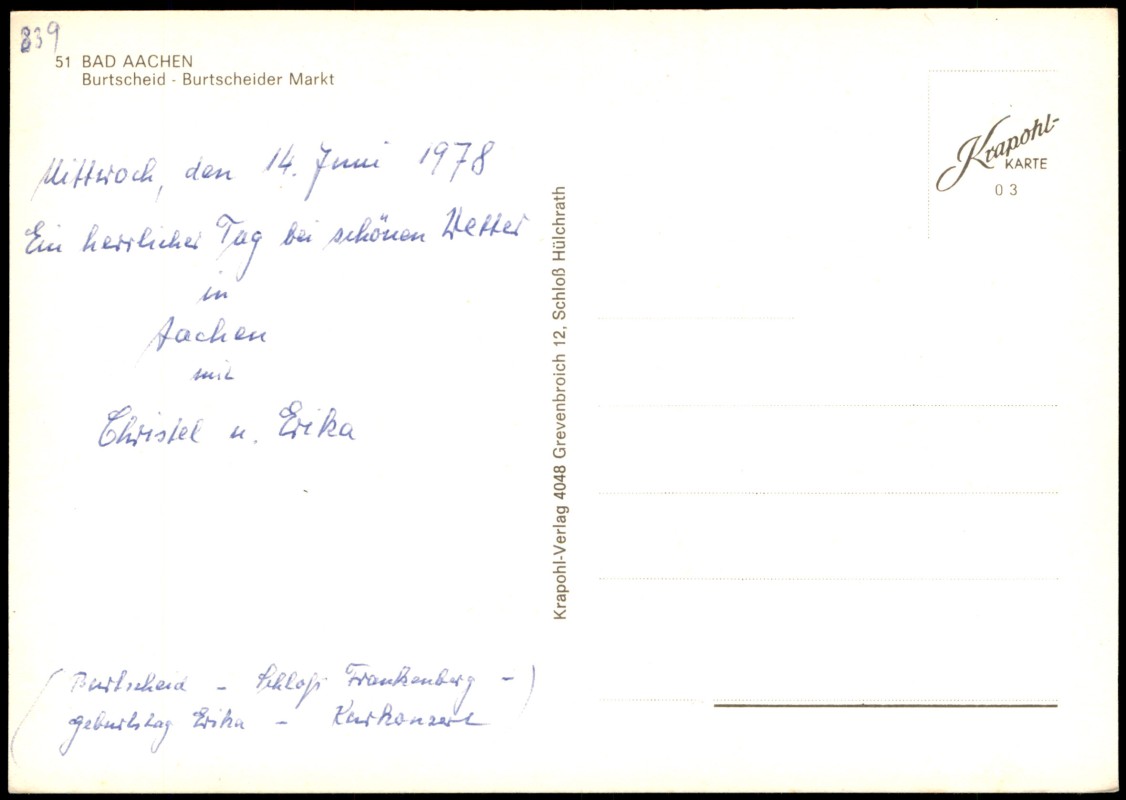 839
51 BAD AACHEN
Burtscheid - Burtscheider Markt
Mittwoch, den 14. Juni 1978
Ein herrlicher Tag bei schönen Wetter
in
Aachen
mit
Christel u. Erika
(Burtscheid - Schloß Frankenberg -)
geburtstag Erika - Kurkonzert
Krapohl-Verlag 4048 Grevenbroich 12, Schloß Hülchrath
Krapohl-
KARTE
03